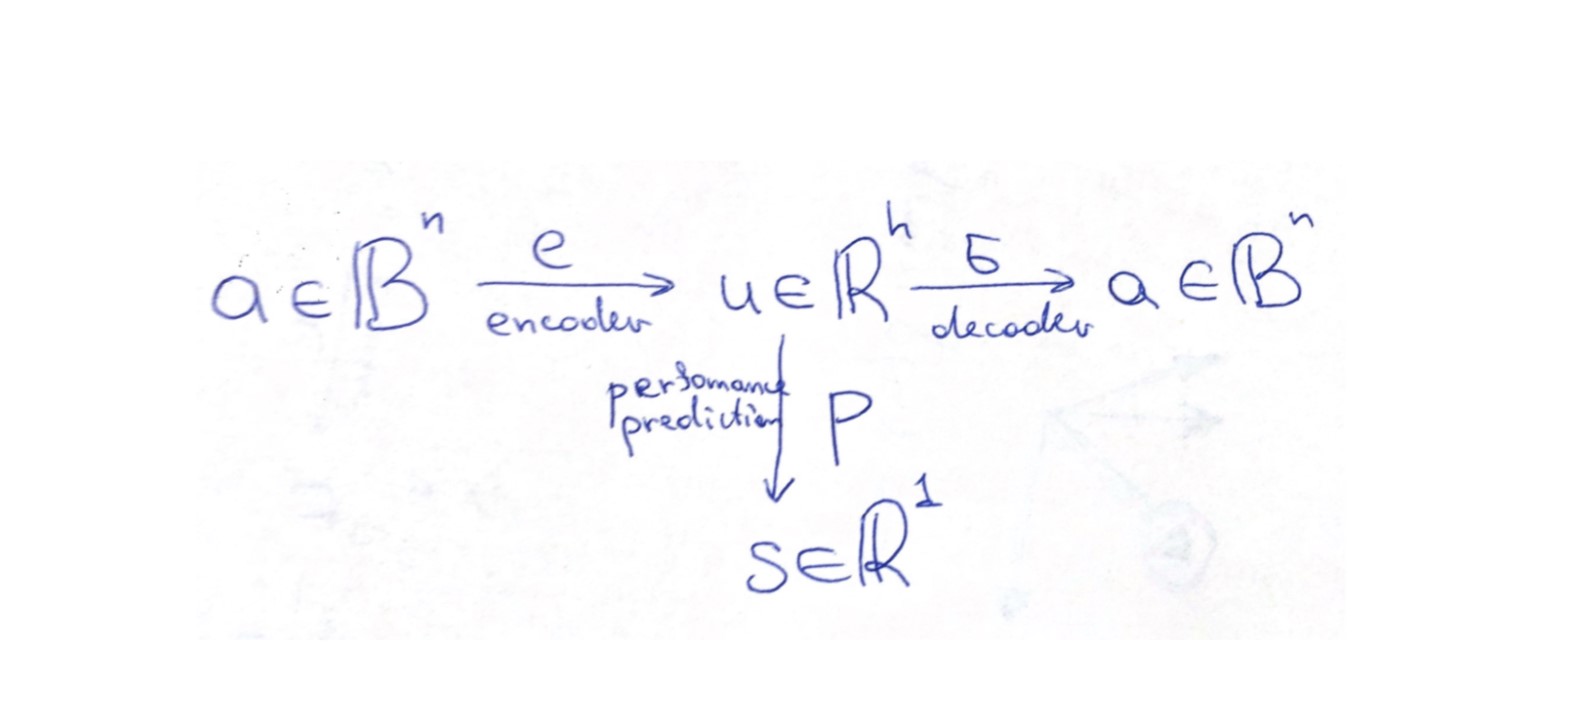 a ∈ 𝔹ⁿ e encoder u ∈ ℝʰ б decoder a ∈ 𝔹ⁿ
perfomance
prediction p
s ∈ ℝ¹